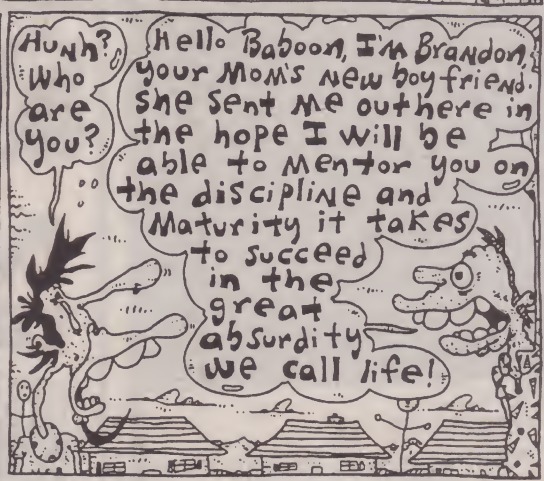 HUNh?
Who
are
you?
Hello Baboon, I'm Brandon,
your MOM'S New boyfriend.
She sent Me out here in
the hope I will be
able to Mentor you on
the discipline and
Maturity it takes
to succeed
in the
great
absurdity
we call life!